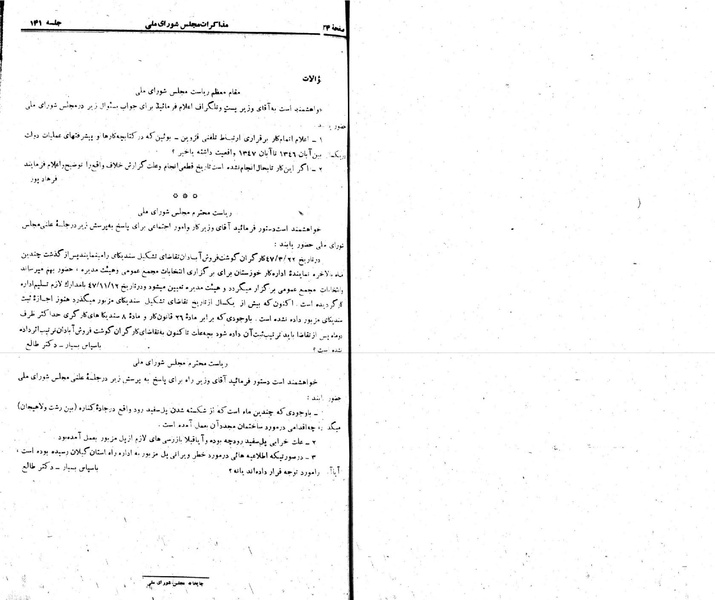 صفحهٔ ۲۴
مذاکرات مجلس شورای ملی
جلسه ۱۴۱
ؤالات
مقام معظم ریاست مجلس شورای ملی
خواهشمند است به آقای وزیر پست وتلگراف اعلام فرمائید برای جواب سئوال زیر درمجلس شورای ملی
حضور یابند
۱ ـ اعلام اتمام کار برقراری ارتباط تلفنی قزوین ـ بوئین که در کتابچه کارها و پیشرفتهای عملیات دولت
بین آبان ۱۳۴۶ تا آبان ۱۳۴۷ واقعیت داشته یاخیر ؟
۲ ـ اگر این کار تابحال انجام نشده است تاریخ قطعی انجام وعلت گزارش خلاف واقع را توضیح واعلام فرمایند
فرهاد پور
ریاست محترم مجلس شورای ملی
خواهشمند است دستور فرمائید آقای وزیر کار وامور اجتماعی برای پاسخ به پرسش زیر درجلسهٔ علنی مجلس
شورای ملی حضور یابند :
درتاریخ ۴۷/۳/۲۲ کارگران گوشت فروش آبادان تقاضای تشکیل سندیکای رامینمایند پس از گذشت چندین
ماه بالاخره نمایندهٔ اداره کار خوزستان برای برگزاری انتخابات مجمع عمومی وهیئت مدیره ، حضور بهم میرساند
وانتخابات مجمع عمومی برگزار میگردد و هیئت مدیره تعیین میشود ودرتاریخ ۴۷/۱۱/۱۲ بامدارک لازم تسلیم اداره
کار گردیده است . اکنون که بیش از یکسال از تاریخ تقاضای تشکیل سندیکای مزبور میگذرد هنوز اجازهٔ ثبت
سندیکای مزبور داده نشده است . باوجودی که برابر مادهٔ ۲۹ قانون کار و مادهٔ ۸ سندیکا های کارگری حداکثر ظرف
دوماه پس از تقاضا باید ترتیب ثبت آن داده شود بچه علت تاکنون به تقاضای کارگران گوشت فروش آبادان ترتیب اثر داده
نشده است ؟
باسپاس بسیار ـ دکتر طالع
ریاست محترم مجلس شورای ملی
خواهشمند است دستور فرمائید آقای وزیر راه برای پاسخ به پرسش زیر درجلسهٔ علنی مجلس شورای ملی
حضور یابند :
ـ باوجودی که چندین ماه است که از شکسته شدن پل سفید رود واقع درجادهٔ کناره (بین رشت ولاهیجان)
میگذرد چه اقدامی درمورد ساختمان مجدد آن بعمل آمده است .
۲ ـ علت خرابی پل سفید رود چه بوده و آیا قبلا بازرسی های لازم از پل مزبور بعمل آمده بود
۳ ـ درصورتیکه اطلاعیه هائی درمورد خطر ویرانی پل مزبور به اداره راه استان گیلان رسیده بوده است ،
آیا آنرا مورد توجه قرار داده اند یا نه ؟
باسپاس بسیار ـ دکتر طالع
چاپخانه مجلس شورای ملی